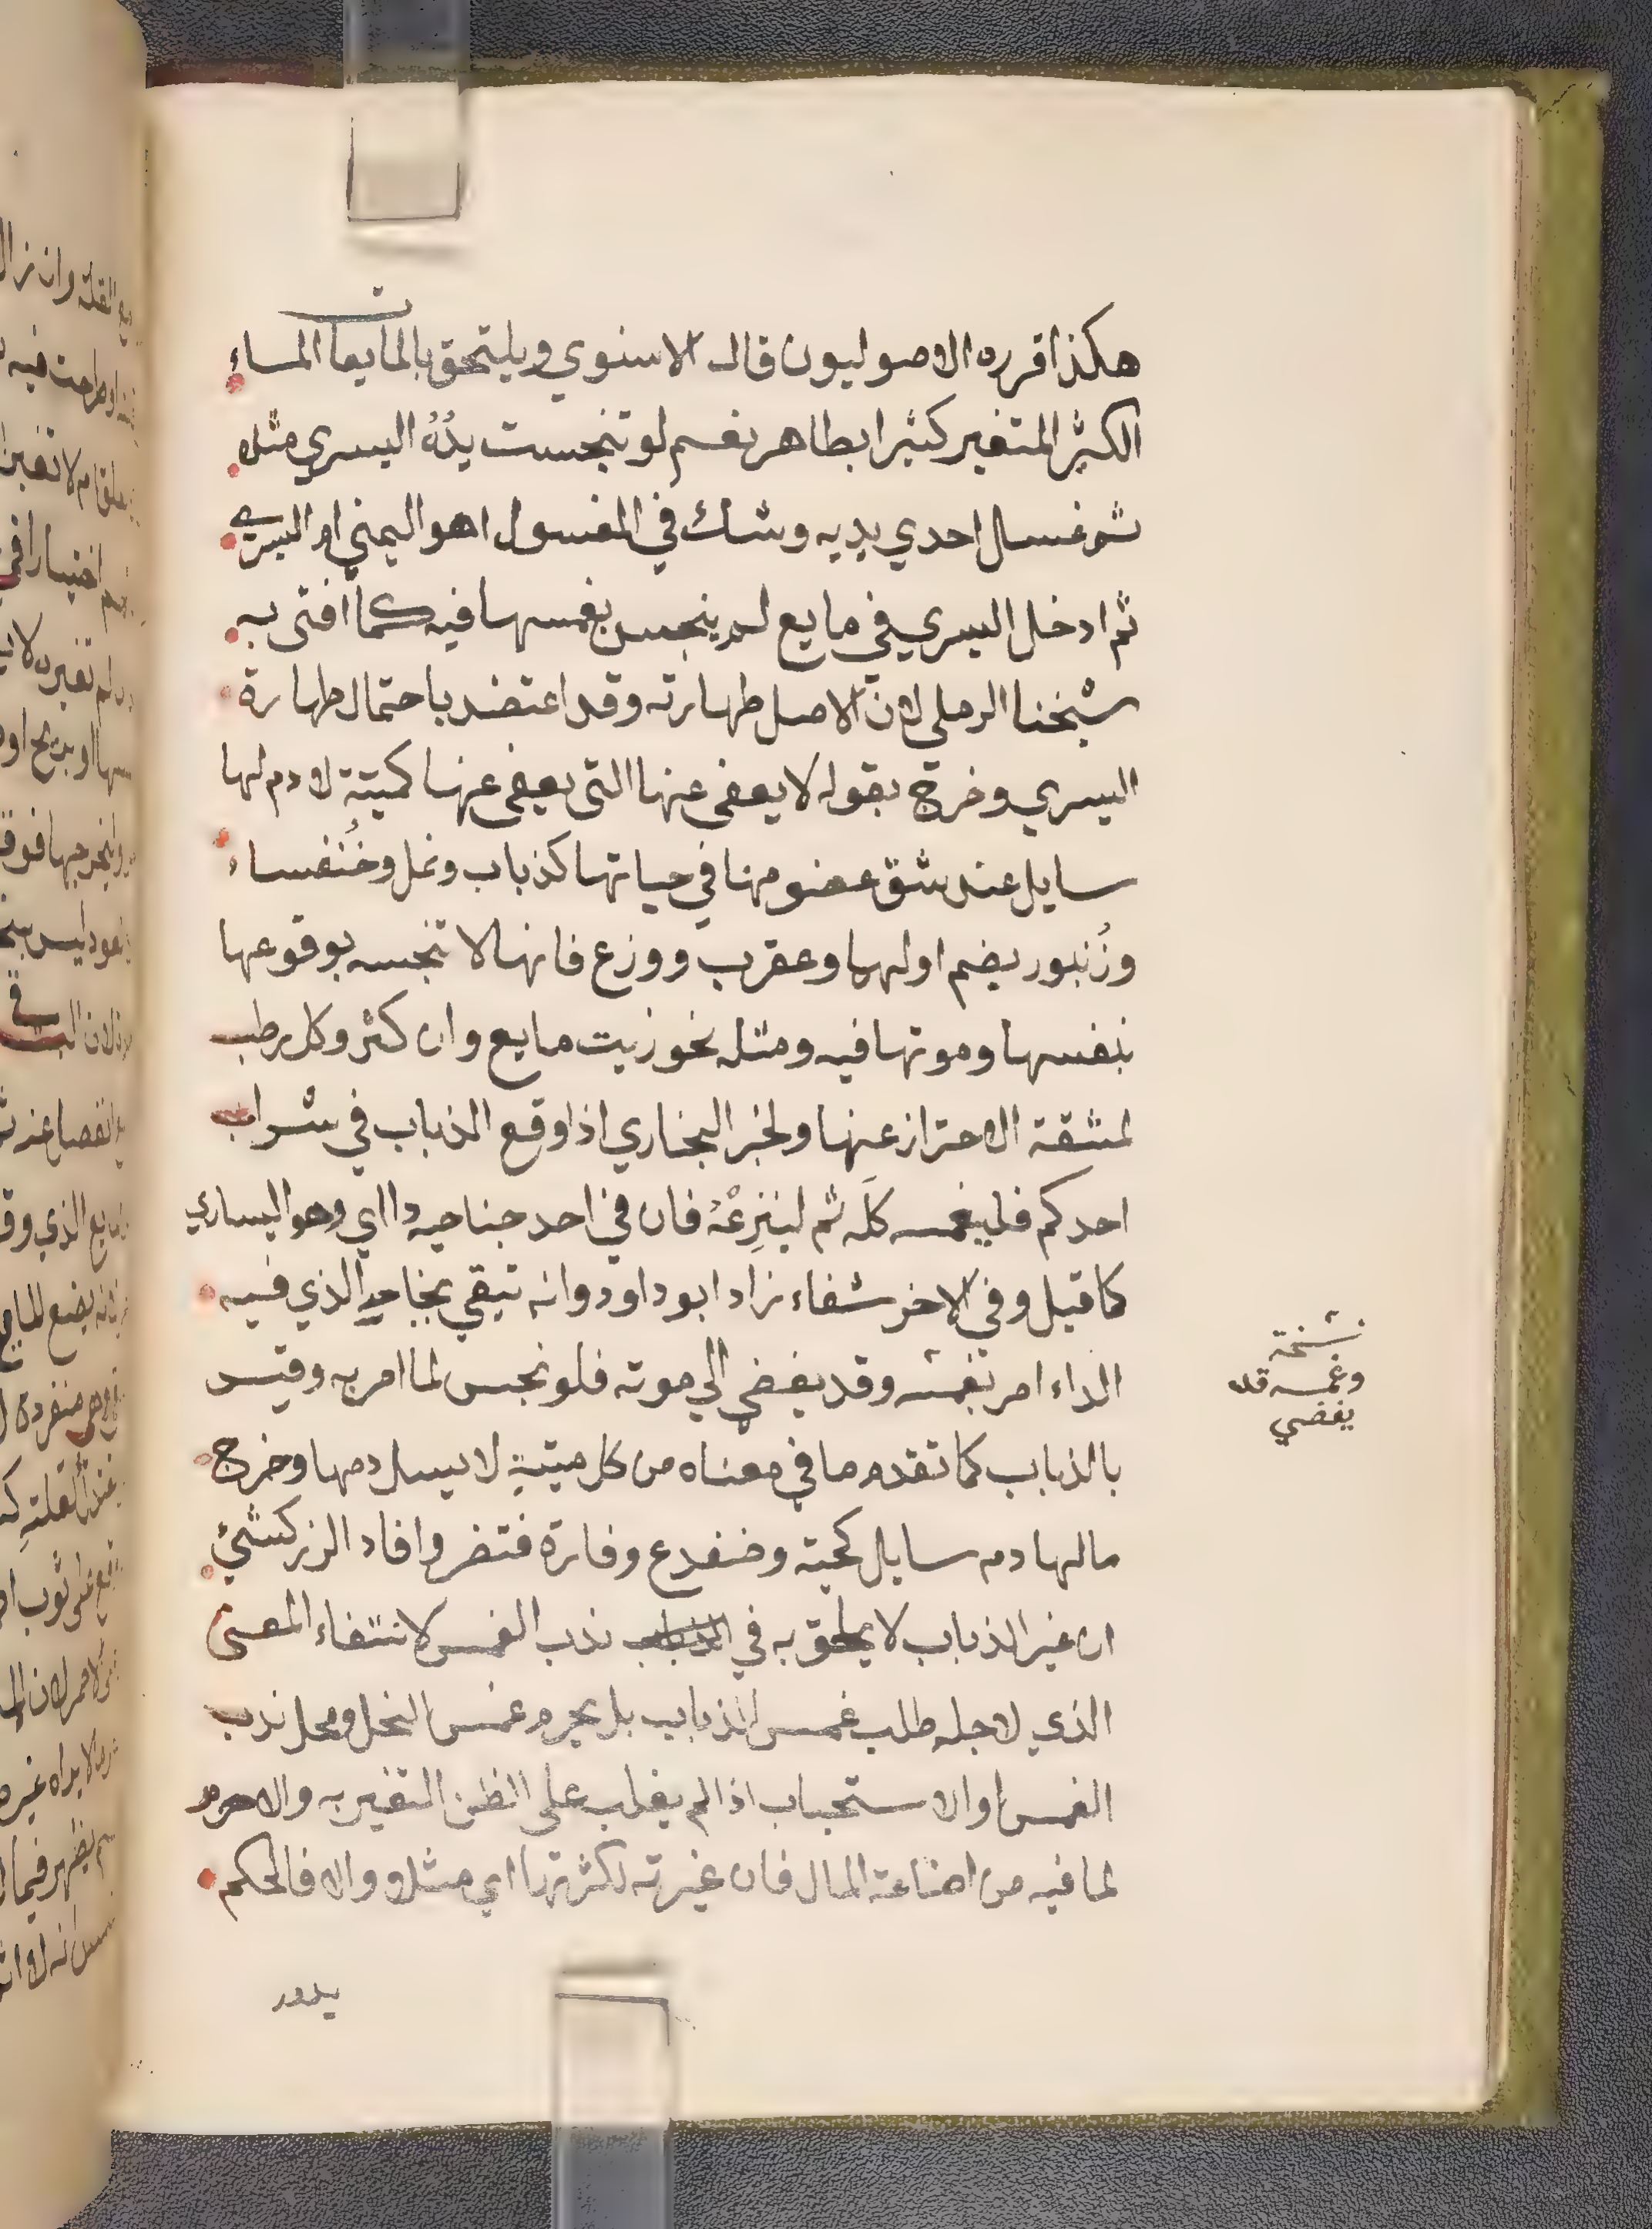 هكذا قرره الاصوليون قال الاسنوي ويلتحق بالمايعات الماء
الكثير المتغير كثيرا بطاهر نعم لو تنجست يدُهُ اليسري مثلا
ثم غسل احدي يديه وشك في المغسول اهو اليمني او اليسري
ثم ادخل اليسري في مايع لم ينجس بغمسها فيه كما افتى به
شيخنا الرملي لان الاصل طهارته وقد اعتضد باحتمال طهارة
اليسري وخرج بقوله لا يعفى عنها التى يعفى عنها كميتة لا دم لها
سايل عند شق عضو منها في حياتها كذباب ونمل وخُنفساء
وزُنبور بضم اولهما وعقرب ووزغ فانها لا تنجسه بوقوعها
بنفسها وموتها فيه ومثله نحو زيت مايع وان كثر وكل رطب
لمشقة الاحتراز عنها ولخبر البخاري اذا وقع الذباب في شراب
احدكم فليغمسه كلَه ثم لينزِعْهُ فان في احد جناحيه داا اي وهو اليسار
كما قيل وفي الاخر شفاء زاد ابو داود وانه تتقي بجناحه الذي فيه
الداء امر بغمسه وقد يفضي الي موته فلو نجس لما امر به وقيس
بالذباب كما تقدم ما في معناه من كل ميتةٍ لا يسيل دمها وخرج
ما لها دم سايل كحية وضفدع وفارة فتضر وافاد الزركشي
ان غير الذباب لا يلحق به في ندب الغمس لانتفاء المعنى
الذي لاجله طلب غمس الذباب بل يحرم غمس النحل ومحل ندب
الغمس او الاستحباب اذا لم يغلب على الظن التغير به والا حرم
لما فيه من اضاعة المال فان غيرته لكثرتها اي مثلا والا فالحكم
يدور
نسخة
وغمسه قد
يفضي